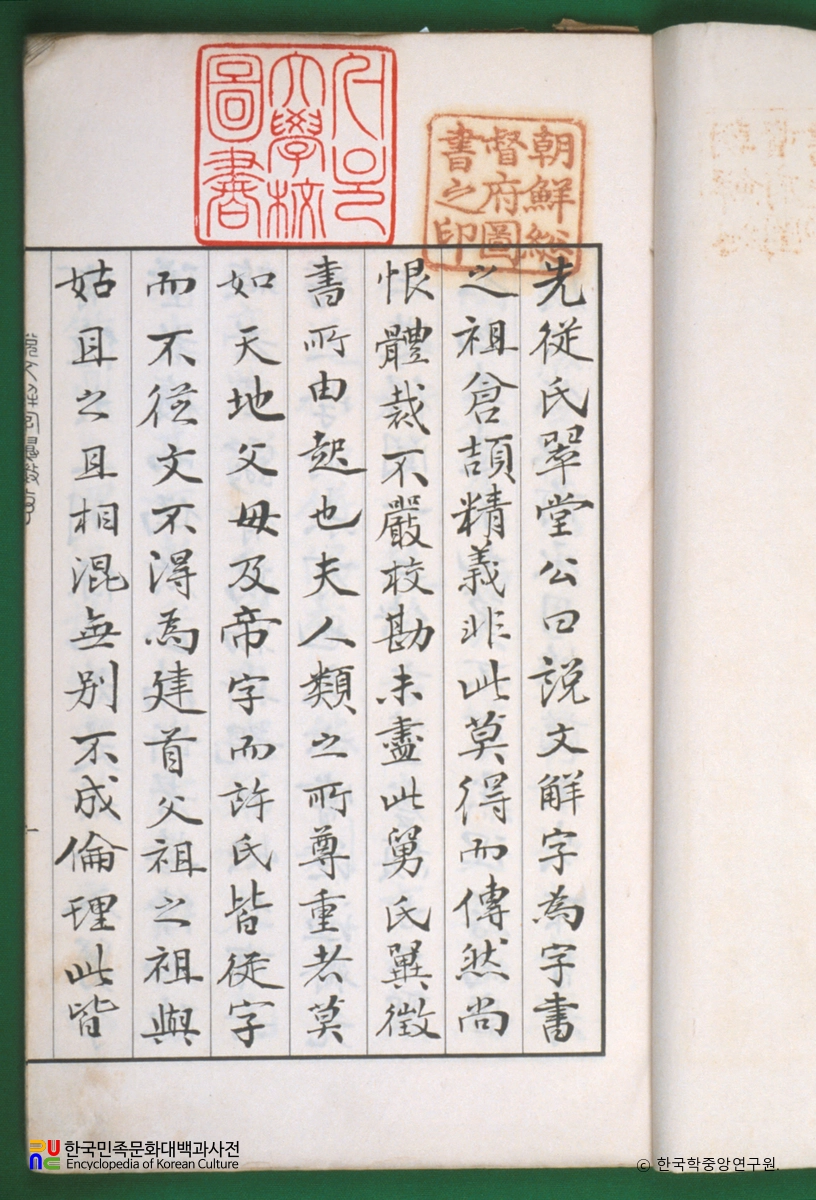 서울大學校圖書
朝鮮総
督府圖
書之印
先從氏翠堂公曰說文解字為字書
之祖倉頡精義非此莫得而傳然尚
恨體裁不嚴校勘未盡此舅氏異徵
書所由起也夫人類之所尊重者莫
如天地父母及帝字而許氏皆從字
而不從文不得為建首父祖之祖與
姑且之且相混無別不成倫理此皆
한국민족문화대백과사전
Encyclopedia of Korean Culture
© 한국학중앙연구원.